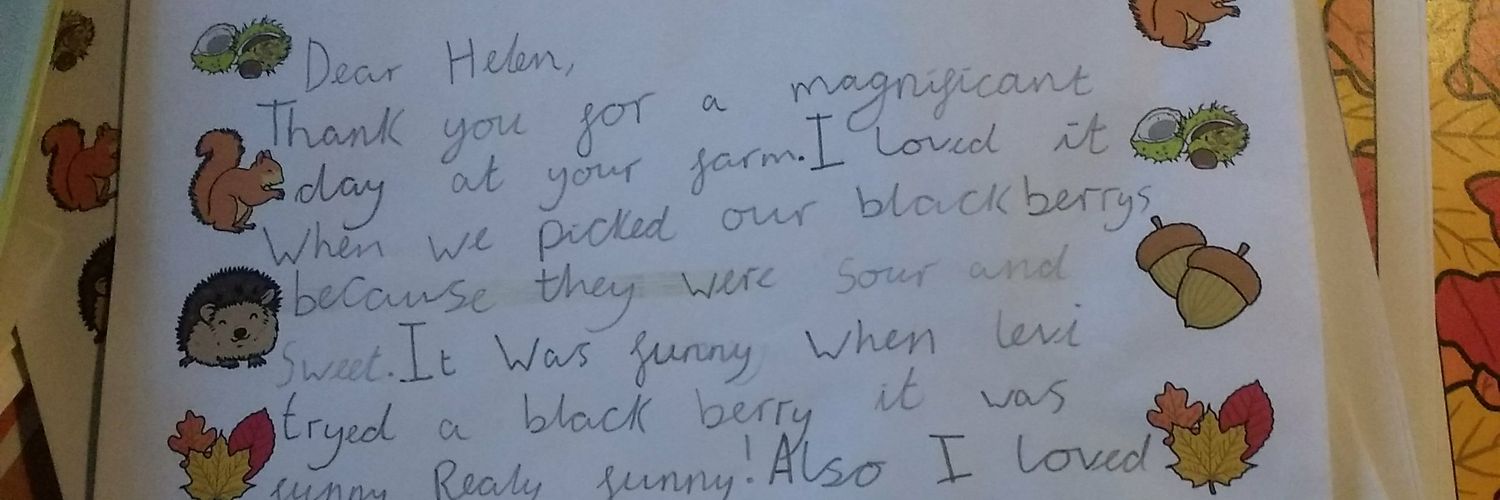 Dear Helen,
Thank you for a magnificant
day at your farm. I loved it
When we picked our blackberrys
because they were sour and
Sweet. It was funny when levi
tryed a black berry it was
funny Realy funny! Also I loved